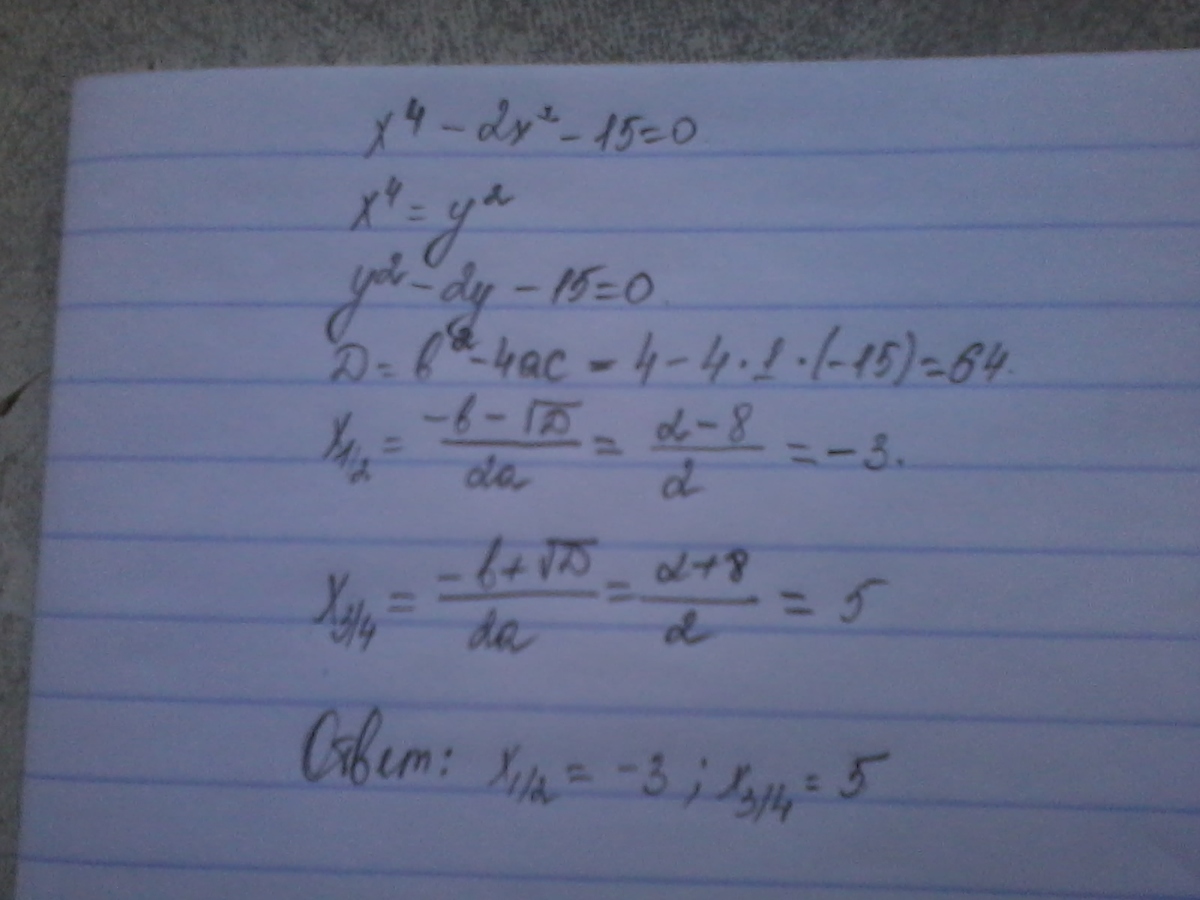 x⁴ - 2x² - 15 = 0
x⁴ = y²
y² - 2y - 15 = 0.
D = b² - 4ac = 4 - 4 · 1 · (-15) = 64.
x₁/₂ = (-b - √D)/2a = (2 - 8)/2 = -3.
x₃/₄ = (-b + √D)/2a = (2 + 8)/2 = 5
Ответ: x₁/₂ = -3 ; x₃/₄ = 5